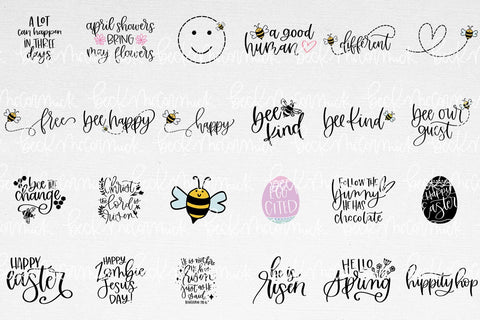 A LOT
can happen
IN THREE
days
april showers
BRING
may flowers
a good
human
different
free
bee happy
happy
bee
kind
bee kind
bee our
guest
bee THE
change
Christ
the Lord
is risen
EGG
CITED
FOLLOW THE
bunny
HE HAS
chocolate
HAPPY
easter
HAPPY
easter
HAPPY
Zombie
JESUS
DAY!
he is not here
he has
risen
just as he
said
he is
risen
HELLO
Spring
hippity hop